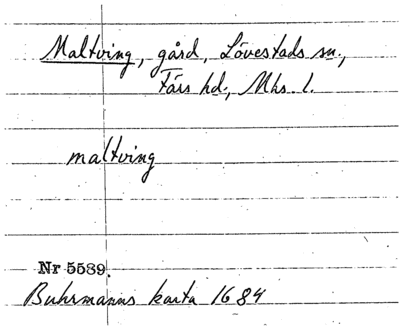 Maltving, gård, Lövestads sn.,
Färs hd., Mhs. l.
maltving
Nr 5589.
Buhrmanns karta 1684